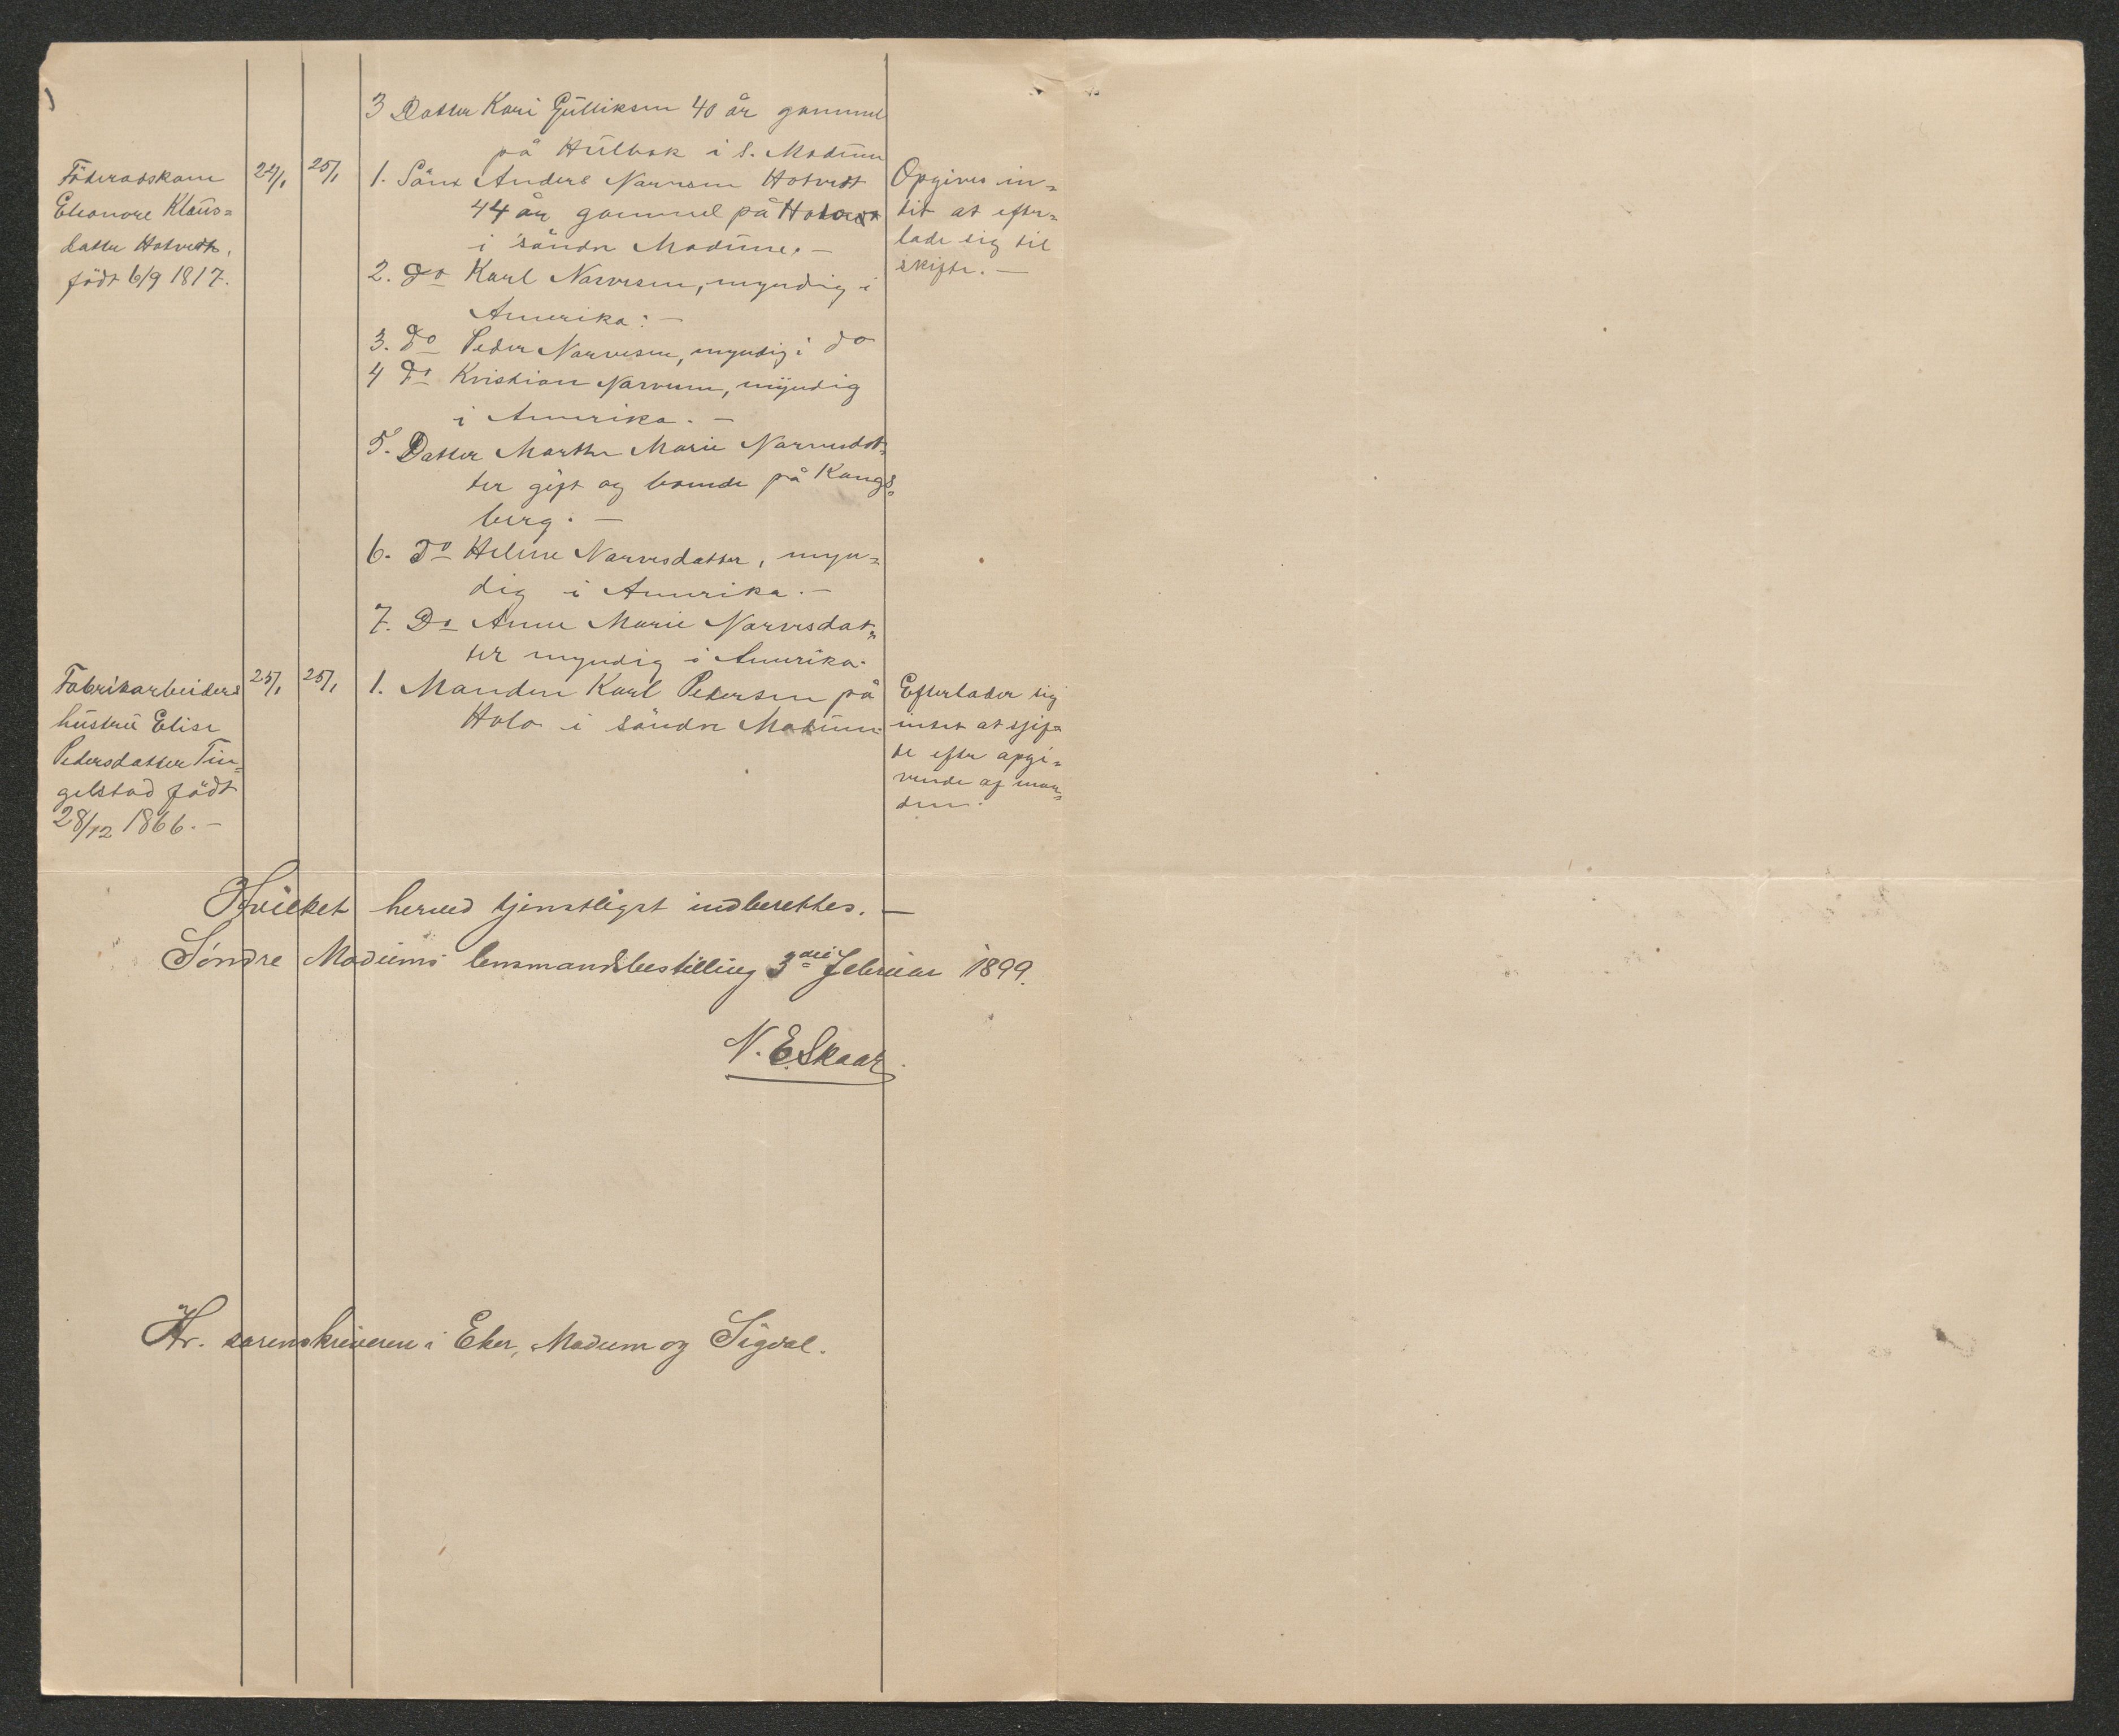 3 Datter Kari Gulliksen 40 år gammel
på Hulbak i S. Modum
Föderadskone
Eleonore Klaus=
datter Hotvedt,
födt 6/9 1817.
24/1
25/1
1. Sön Anders Narvesen Hotvedt
44 år gammel på Hotvedt
i söndre Modum. —
2. Do Karl Narvesen, myndig i
Amerika: —
3. Do Peder Narvesen, myndig i do
4 Do Kristian Narvesen, myndig
i Amerika. —
5. Datter Marthe Marie Narvesdat=
ter gift og boende på Kongs=
berg. —
6. Do Helene Narvesdatter, myn=
dig i Amerika. —
7. Do Anne Marie Narvesdat=
ter myndig i Amerika.
Opgives in=
tet at efter=
lade sig til
skifte. —
Fabrikarbeiders
hustru Elise
Pedersdatter Tin=
gelstad födt
28/12 1866. —
25/1
25/1
1. Manden Karl Pedersen på
Holo i söndre Modum.
Efterlader sig
intet at skif=
te efter opgi=
vende af man=
den.
Hvilket herved tjenstligst indberettes. —
Søndre Modums lensmandsbestilling 3die Februar 1899.
N. E. Skaar.
Hr. sorenskriveren i Eker, Modum og Sigdal.